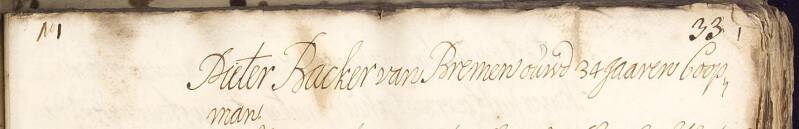 N 1
33
Pieter Backer van Bremen ouwd 34 Jaaren Coop-
man